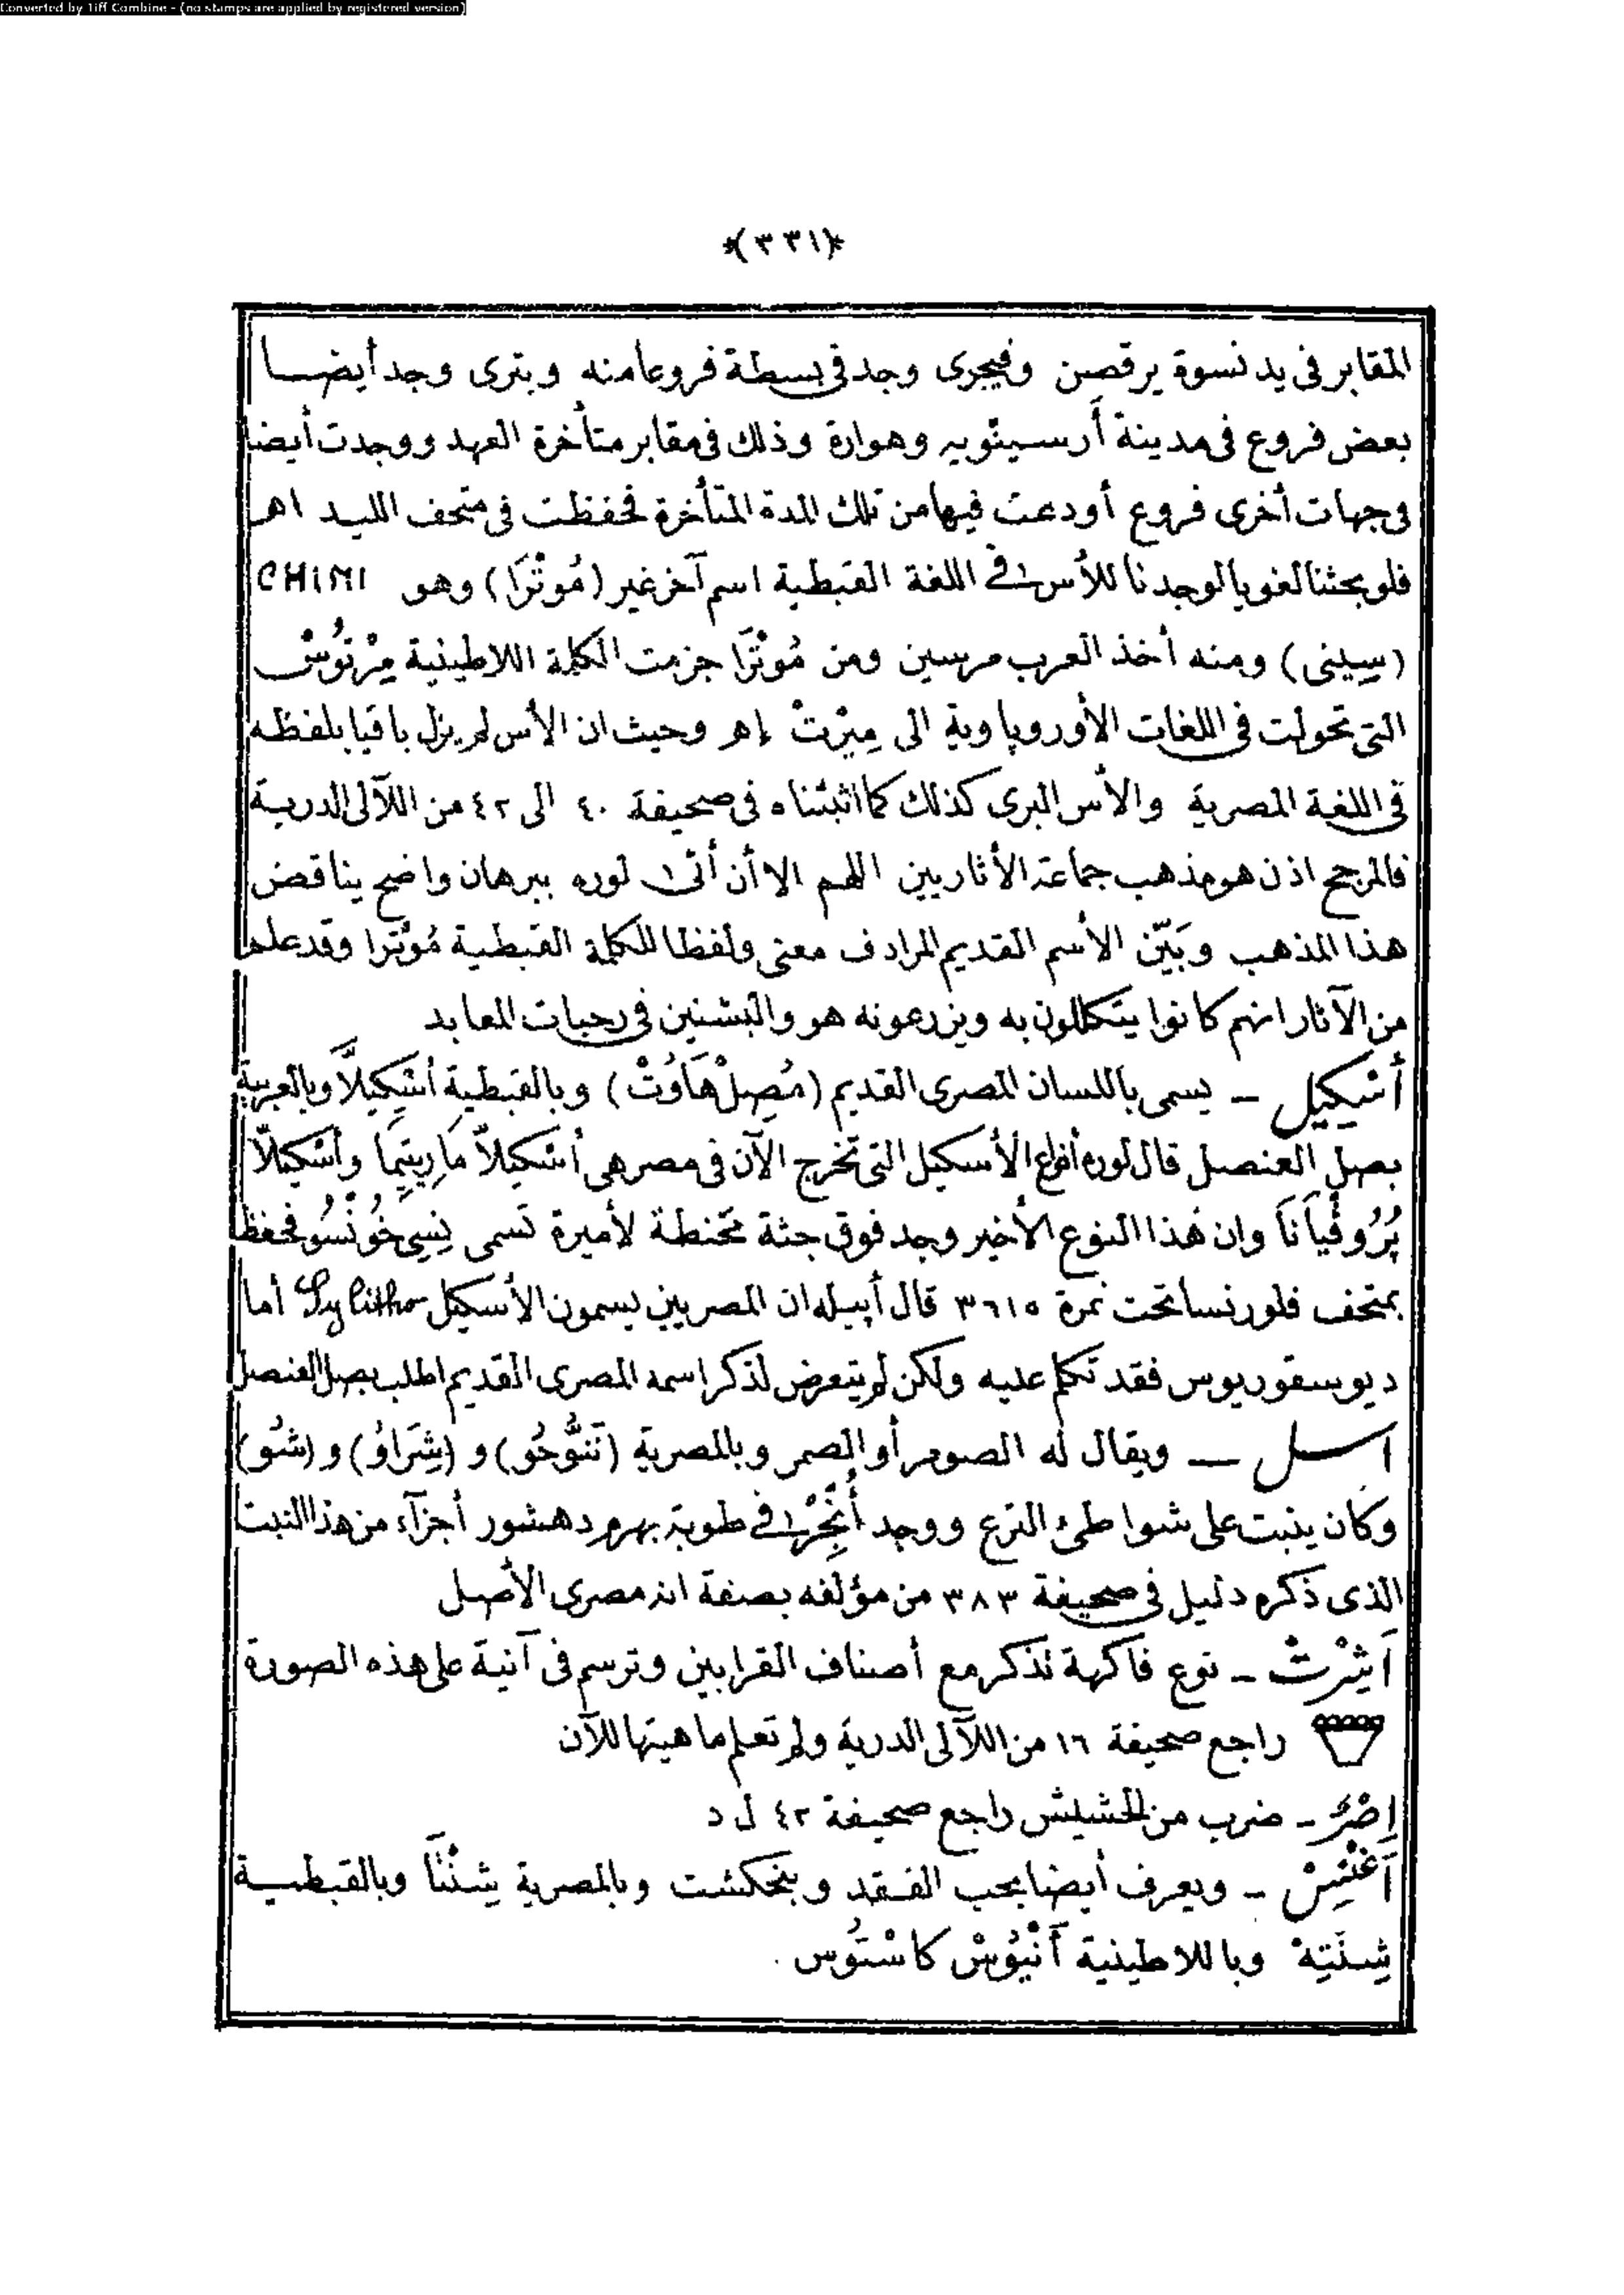 Converted by Tiff Combine - (no stamps are applied by registered version)
*(٣٣١)*
المقابر فى يد نسوة يرقصن وفيجرى وجد فى بسطة فروعا منه وبترى وجد أيضا
بعض فروع فى مدينة أرسينويه وهوارة وذلك فى مقابر متأخرة العهد ووجدت أيضا
فى جهات أخرى فروع أودعت فيها من تلك المدة المتأخرة فحفظت فى متحف الليد اهـ
فلو بحثنا لغويا لوجدنا للأس فى اللغة القبطية اسم آخر غير (مُوثْرَا) وهو CHIMI
(سِينى) ومنه أخذ العرب مرسين ومن مُوثْرَا جزمت الكلمة اللاطينية مِرْتُوسْ
التى تحولت فى اللغات الأوروپاوية الى مِيْرتْ إهـ وحيث ان الأس لم يزل باقيا بلفظه
فى اللغة المصرية والأس البرى كذلك كما اثبتناه فى صحيفة ٤٠ الى ٤٢ من اللآلى الدرية
فالمرجح اذن هو مذهب جماعة الأثاريين اللهم الا أن أتى لوره ببرهان واضح يناقض
هذا المذهب وبَيّن الأسم القديم المرادف معنى ولفظا للكلمة القبطية مُوثْرا وقد علم
من الآثار انهم كانوا يتكللون به ويزرعونه هو والبشنين فى رحبات المعابد
أسْكِيل – يسمى باللسان المصرى القديم (مُصِلْ هَاوُتْ) وبالقبطية أسْكِيلاَّ وبالعربية
بصل العنصل قال لوره أنواع الأسكيل التى تخرج الآن فى مصر هى أسْكيلاّ مَارِيتِيمَا وأسْكيلاّ
پُرُوڤيَانَا وان هذا النوع الأخير وجد فوق جثة محنطة لأميرة تسمى نِسِى خُونْسُو فحفظ
بمتحف فلورنسا تحت نمرة ٣٦١٥ قال أپيله ان المصريين يسمون الأسكيل أما
ديوسقوريوس فقد تكلم عليه ولكن لم يتعرض لذكر اسمه المصرى القديم اطلب بصل العنصل
اسل — ويقال له الصومر أو الصمر وبالمصرية (تَنوُّحُو) و (شِرَاوُ) و (شُو)
وكان ينبت على شواطئ الترع ووجد أُنْجِر فى طوبة بهرم دهشور أجزآء من هذا النبت
الذى ذكره دليل فى صحيفة ٣٨٣ من مؤلفه بصفة انه مصرى الأصل
اَشِرْتْ – نوع فاكهة تذكر مع أصناف القرابين وترسم فى آنية على هذه الصورة
راجع صحيفة ١٦ من اللآلى الدرية ولم تعلم ماهيتها للآن
اِصْرُ – ضرب من الحشيش راجع صحيفة ٤٢ ل د
اَغْنِسْ – ويعرف أيضا بحب الفقد وبنجكشت وبالمصرية شِنْتَا وبالقبطية
شِنَتِهْ وباللاطينية أنْيُوسْ كاسْتُوس.